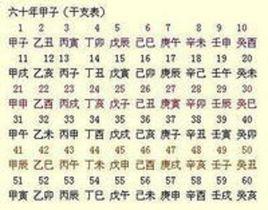 六十年甲子(干支表)
1 2 3 4 5 6 7 8 9 10
甲子 乙丑 丙寅 丁卯 戊辰 己巳 庚午 辛未 壬申 癸酉
11 12 13 14 15 16 17 18 19 20
甲戌 乙亥 丙子 丁丑 戊寅 己卯 庚辰 辛巳 壬午 癸未
21 22 23 24 25 26 27 28 29 30
甲申 乙酉 丙戌 丁亥 戊子 己丑 庚寅 辛卯 壬辰 癸巳
31 32 33 34 35 36 37 38 39 40
甲午 乙未 丙申 丁酉 戊戌 己亥 庚子 辛丑 壬寅 癸卯
41 42 43 44 45 46 47 48 49 50
甲辰 乙巳 丙午 丁未 戊申 己酉 庚戌 辛亥 壬子 癸丑
51 52 53 54 55 56 57 58 59 60
甲寅 乙卯 丙辰 丁巳 戊午 己未 庚申 辛酉 壬戌 癸亥